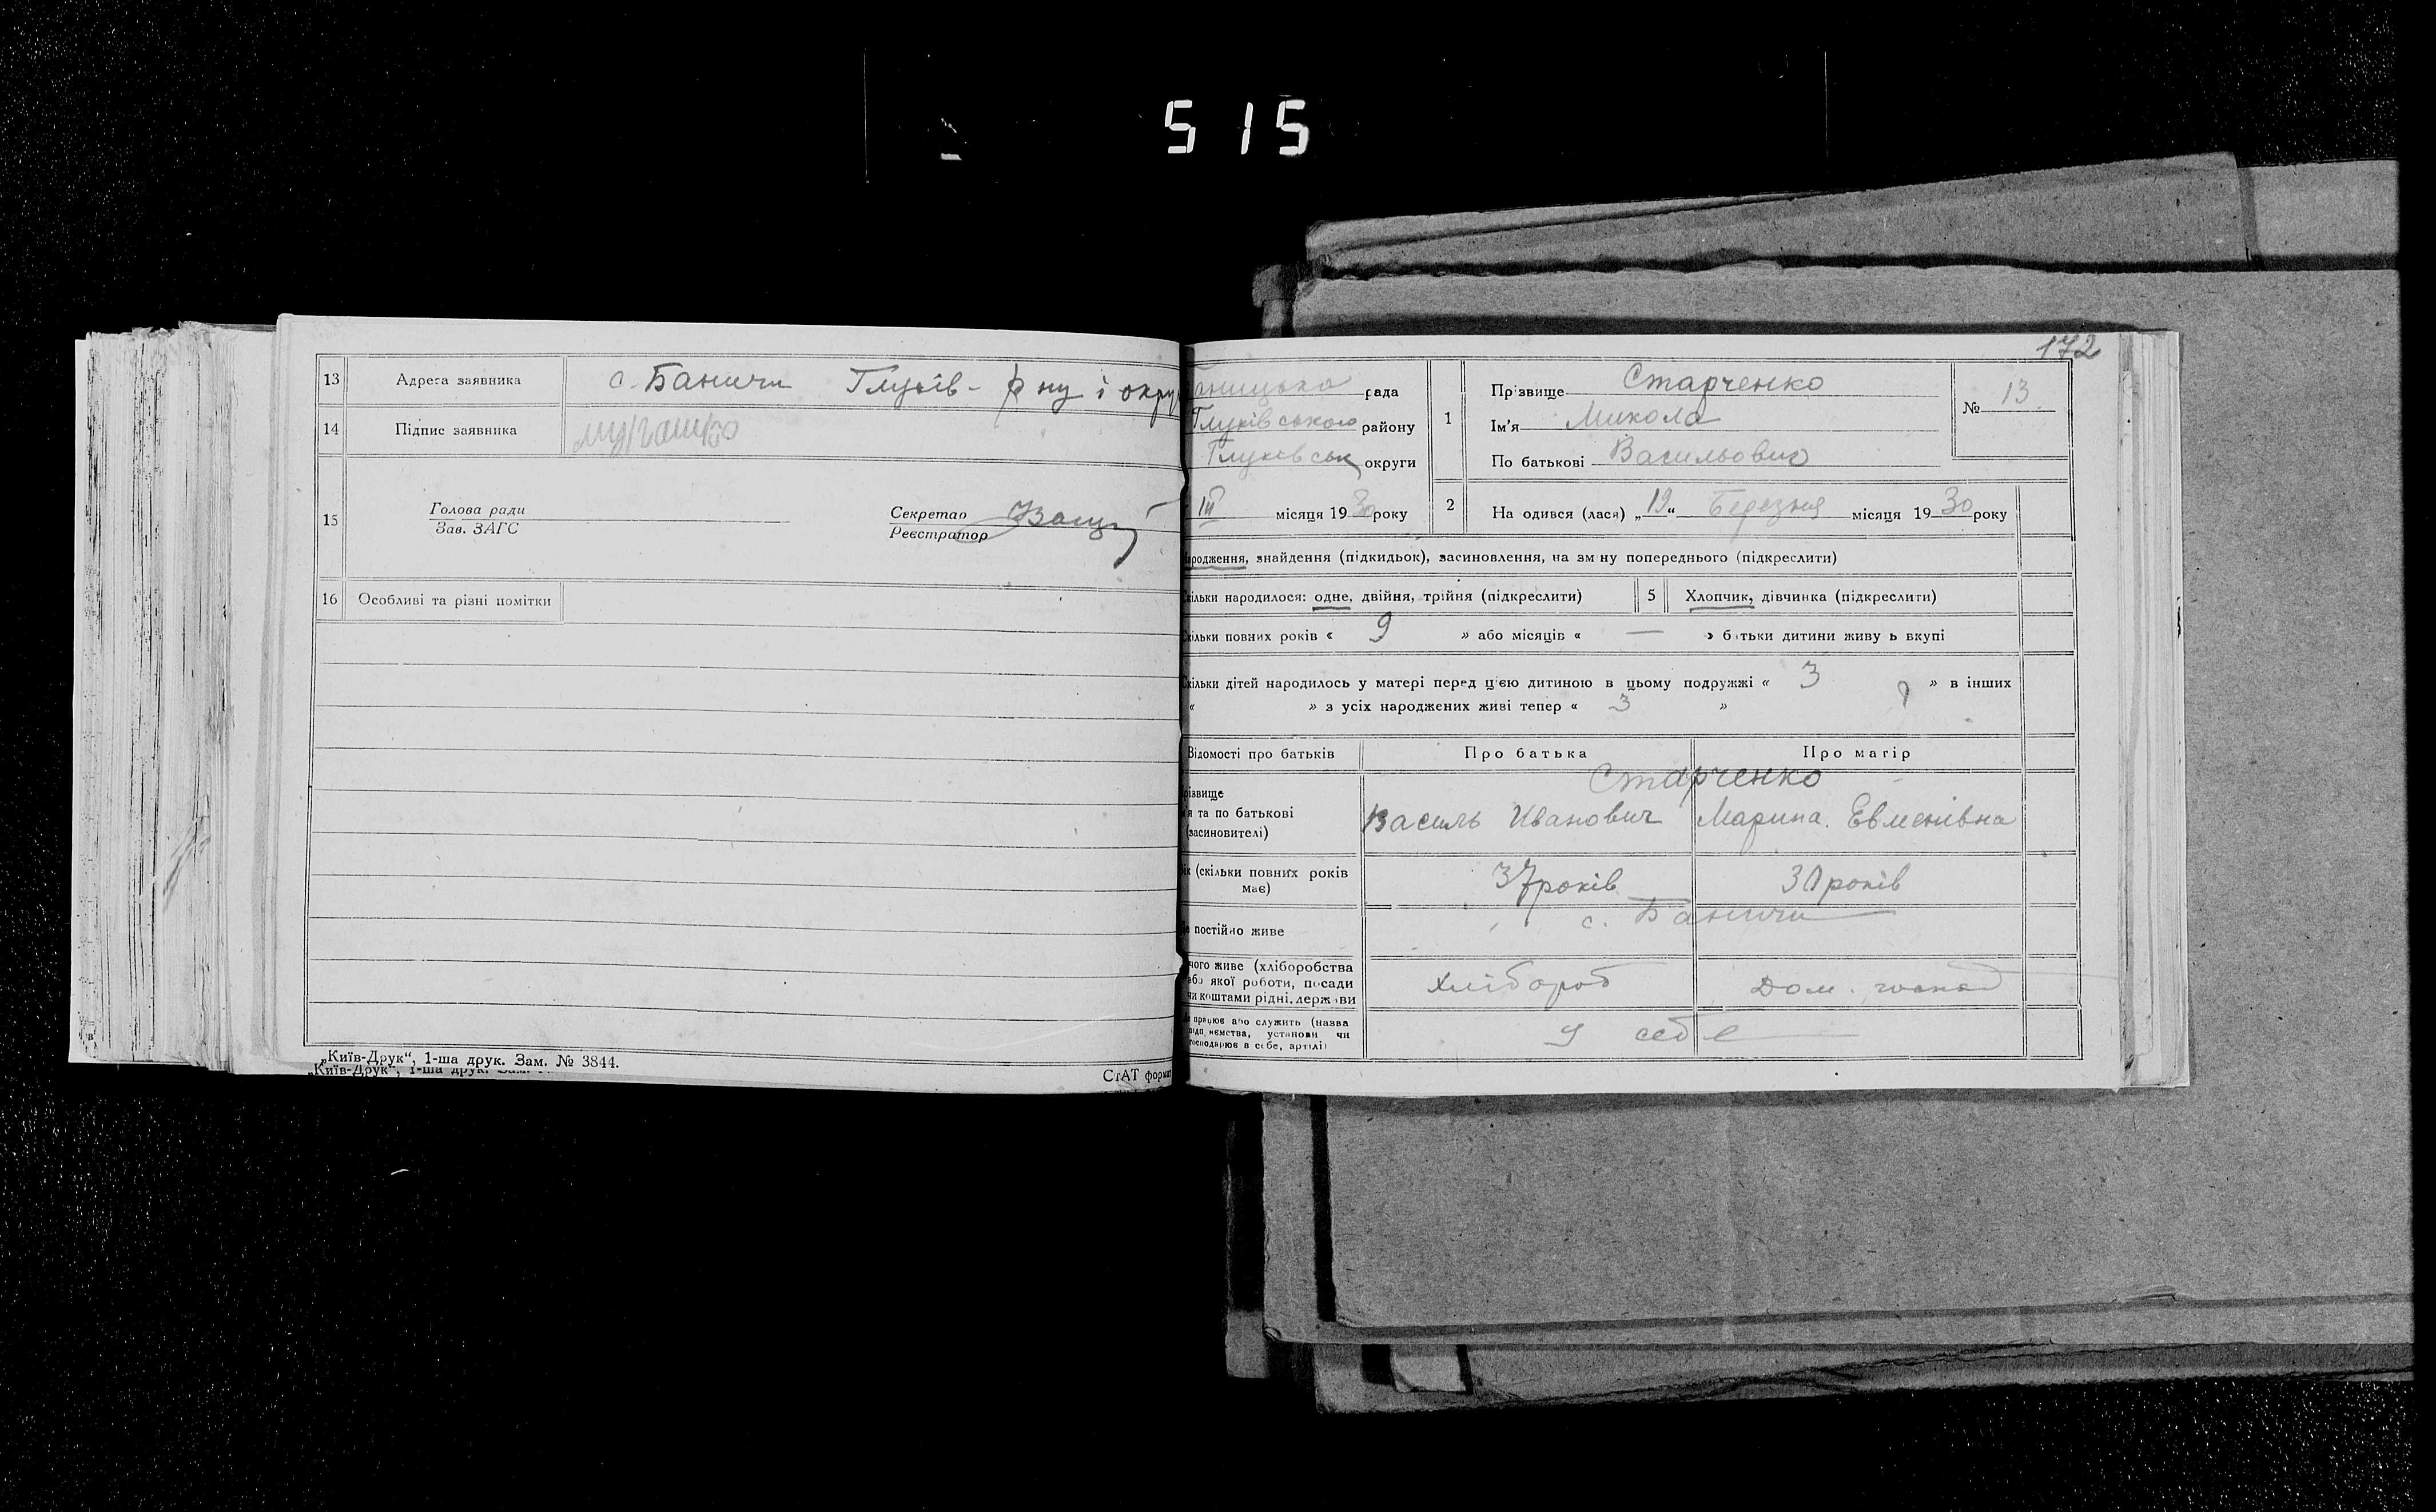 515
13 Адреса заявника с. Баничи Глухів- р ну і окру
14 Підпис заявника
15 Голова ради
Зав. ЗАГС
Секретар
Реєстратор
16 Особливі та різні помітки
„Київ-Друк“, 1-ша друк. Зам. № 3844.
„Київ-Друк“, 1-ша друк.
СтАТ формат
172
аницька рада
Глухівського району
Глухівськ округи
III місяця 1930 року
1 Прізвище Старченко
Ім'я Микола
По батькові Васильович
№ 13
2 На одився (лася) „19“ Березня місяця 1930 року
ародження, знайдення (підкидьок), засиновлення, на зм ну попереднього (підкреслити)
кільки народилося: одне, двійня, трійня (підкреслити) 5 Хлопчик, дівчинка (підкреслити)
кільки повних років « 9 » або місяців « — » б тьки дитини живу ь вкупі
кільки дітей народилось у матері перед цією дитиною в цьому подружжі « 3 » в інших
« » з усіх народжених живі тепер « 3 »
Відомості про батьків Про батька Про матір
Старченко
різвище
'я та по батькові
(засиновителі)
Василь Иванович Марина Евменівна
ік (скільки повних років
має)
37 років 30 років
е постійно живе с. Баничи
чого живе (хліборобства
або якої роботи, посади
чи коштами рідні, держави
Хлібороб Дом.
е працює або служить (назва
підп ємства, установи чи
господарює в себе, артілі)
У себе